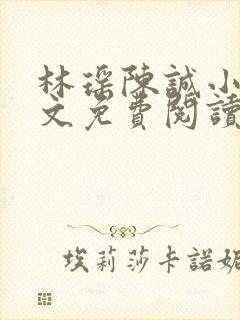 林瑶陳誠小
文免費閱讀
埃莉莎卡諾妮